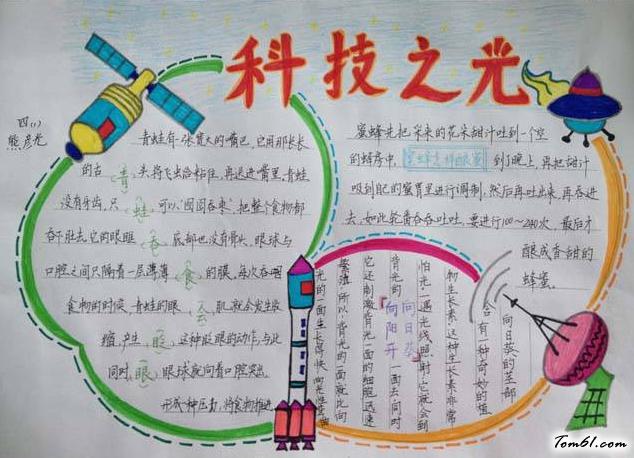 科技之光
四(1)
熊彦光
青蛙有一张宽大的嘴巴,它用那长长
的舌
青
头将飞虫给粘住,再送进嘴里,青蛙
没有牙齿,只
蛙
可以"囫囵吞枣",把整个食物都
吞下肚去,它的眼眶
吞
底部也没有骨头,眼球与
口腔之间只隔着一层薄薄
食
的膜,每次吞咽
食物的时候,青蛙的眼
会
肌就会发生收
缩,产生
眨
这种眨眼的动作,与此
同时,
眼
眼球就向着口腔突出,
形成一种压力,将食物推进
蜜蜂先把采来的花朵甜汁吐到一个空
的蜂房中,
蜜蜂怎样酿蜜
到了晚上,再把甜汁
吸到配的蜜胃里进行调制,然后再吐出来,再吞进
去,如此轮番吞吞吐吐,要进行100~240次,最后才
酿成香甜的
蜂蜜。
向日葵的茎部
含有一种奇妙的植
物生长素,这种生长素非常
怕光,一遇光线照射,它就会到
背光的
向日葵
向阳开
一面去,同时
它还刺激背光一面的细胞迅速
繁殖,所以,背光的一面就比向
光的一面生长得快
Tom61.com